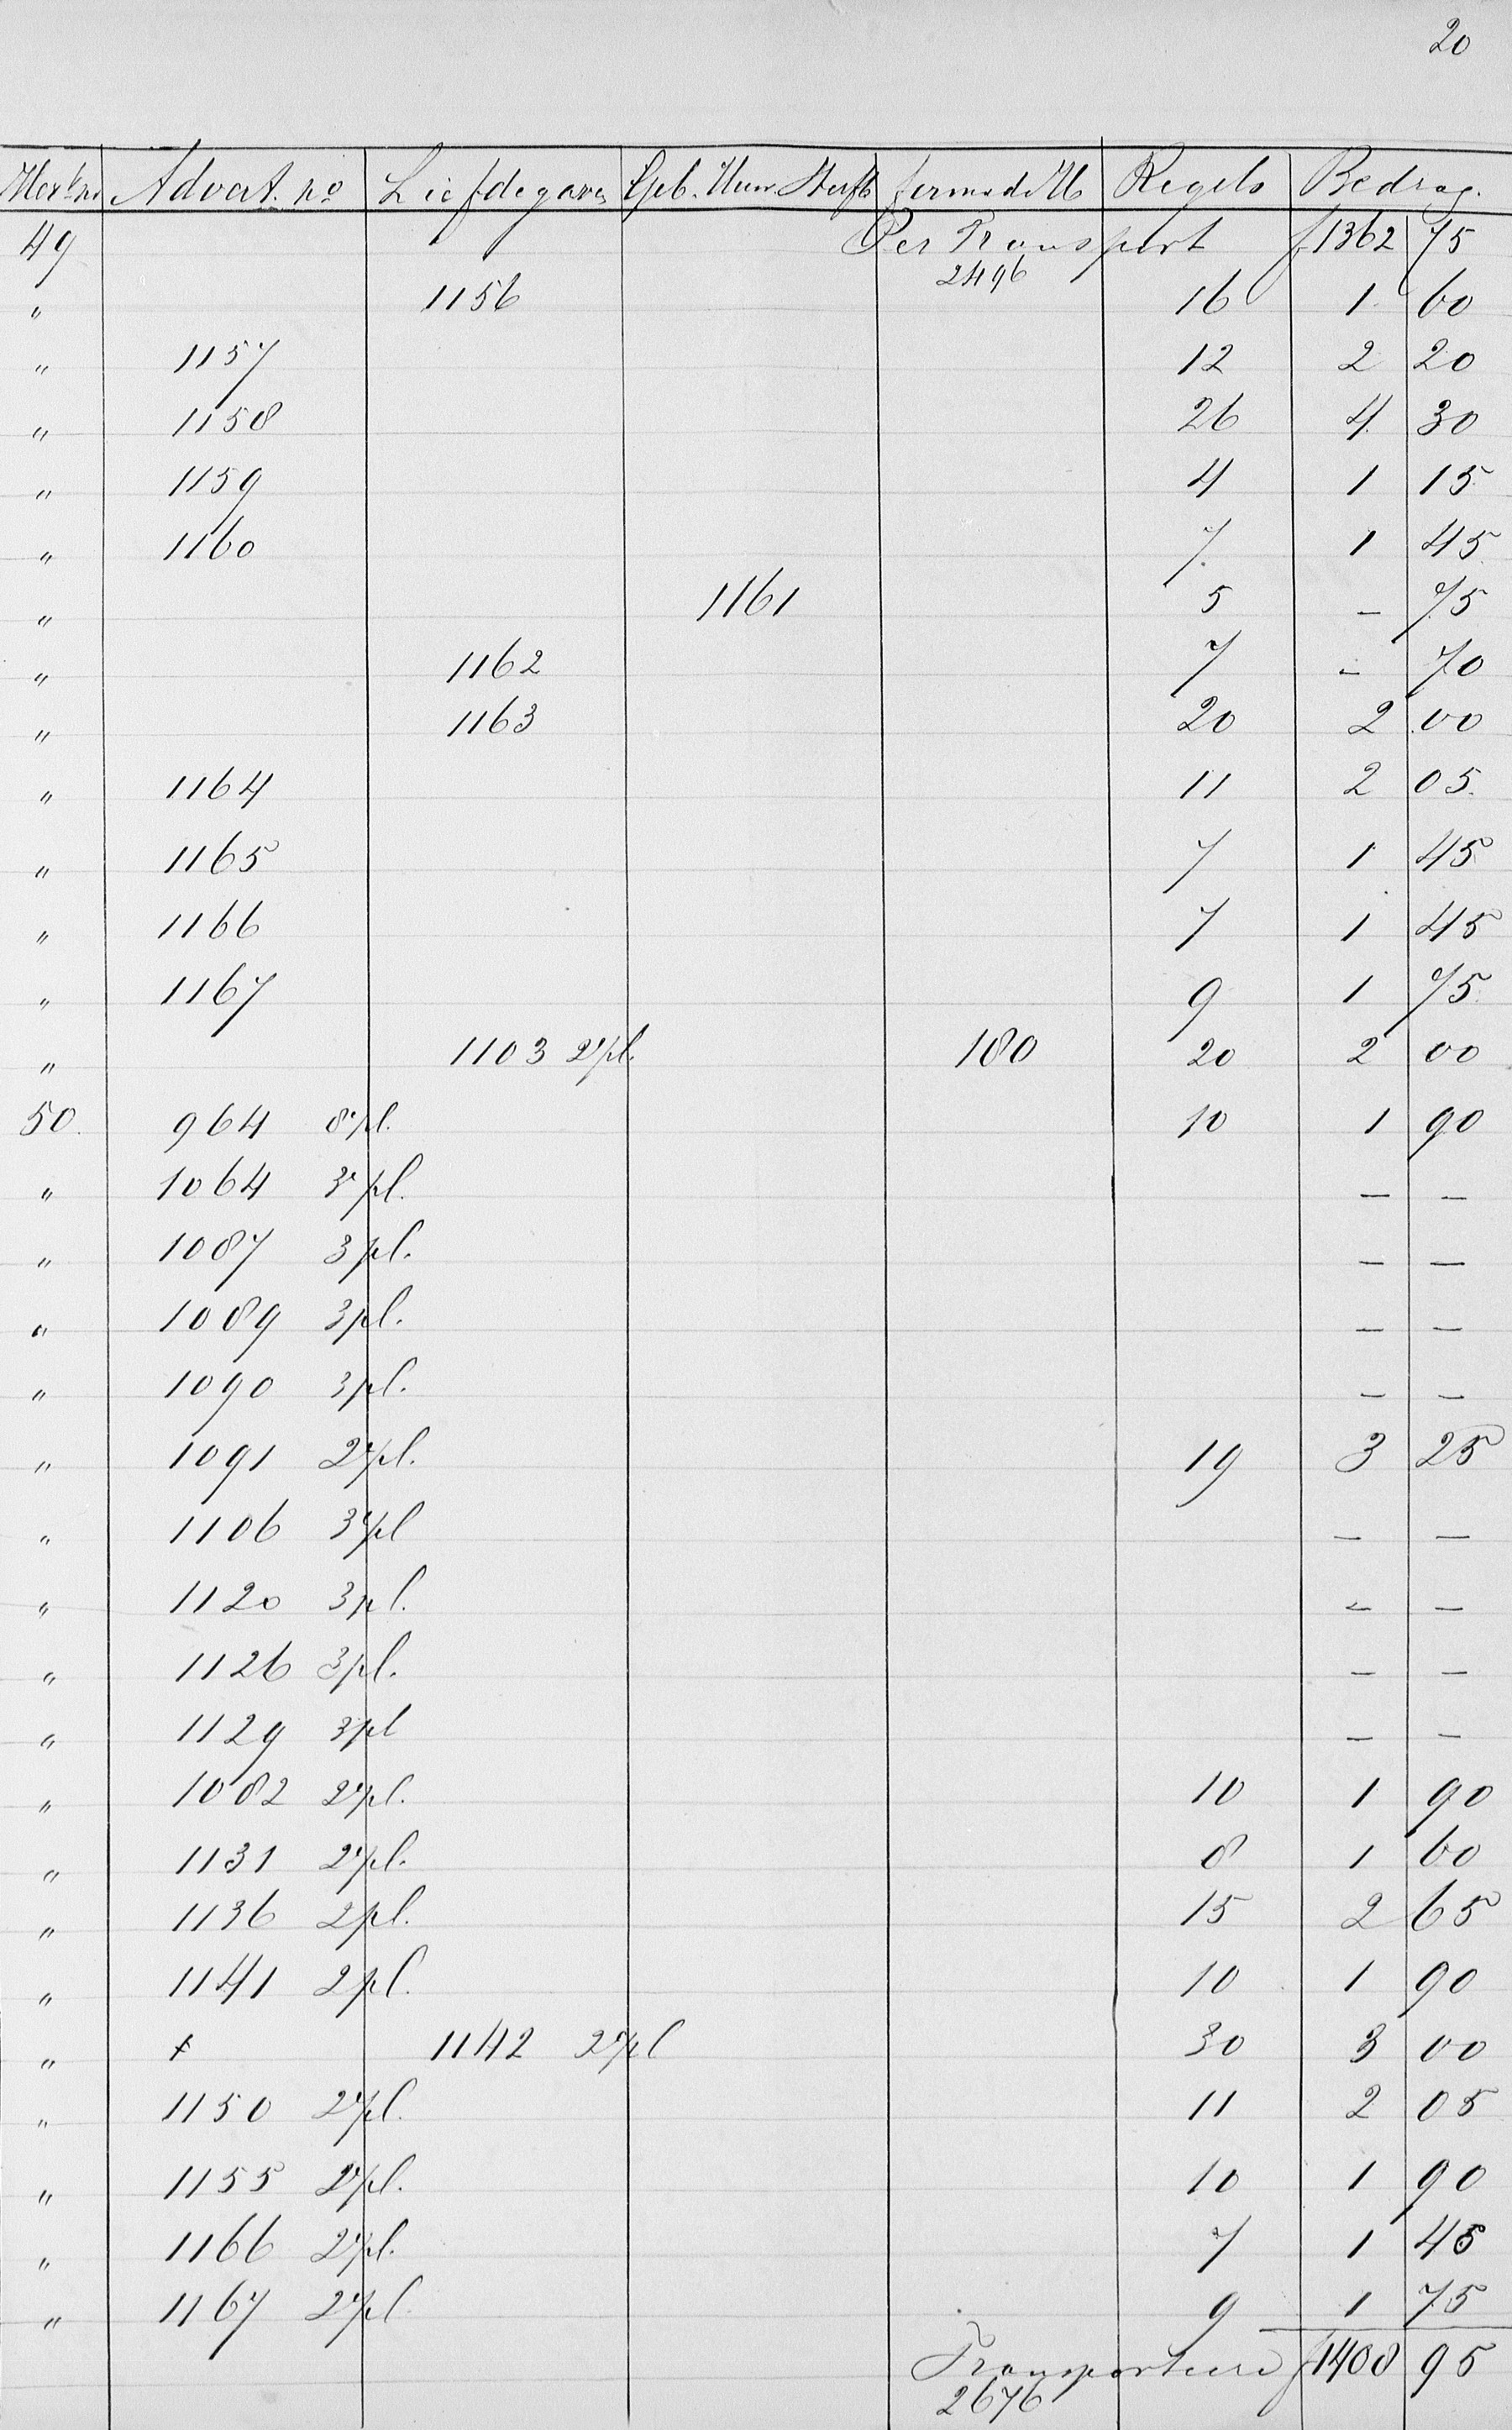 20
Advert. no Liefdegaven Geb. Huw. Sterfb Regels Bedrag.
49 Per Transport f 1362 75
2496
" 1156 16 1 60
" 1157 12 2 20
" 1158 26 4 30
" 1159 4 1 15
" 1160 7 1 45
" 1161 5 - 75
" 1162 7 - 70
" 1163 20 2 00
" 1164 11 2 05
" 1165 7 1 45
" 1166 7 1 45
" 1167 9 1 75
" 1103 2e pl. 180 20 2 00
50. 964 8e pl. 10 1 90
" 1064 3e pl. — —
" 1087 3 pl. — —
" 1089 3 pl. — —
" 1090 3 pl. — —
" 1091 2e pl. 19 3 25
" 1106 3e pl — —
" 1120 3 pl. — —
" 1126 3 pl. — —
" 1129 3 pl — —
" 1082 2e pl. 10 1 90
" 1131 2e pl. 8 1 60
" 1136 2 pl. 15 2 65
" 1141 2 pl. 10 1 90
" + 1142 2e pl 30 3 00
" 1150 2e pl. 11 2 05
" 1155 2e pl. 10 1 90
" 1166 2e pl. 7 1 45
" 1167 2e pl. 9 1 75
Transporteere f 1408 95
2676